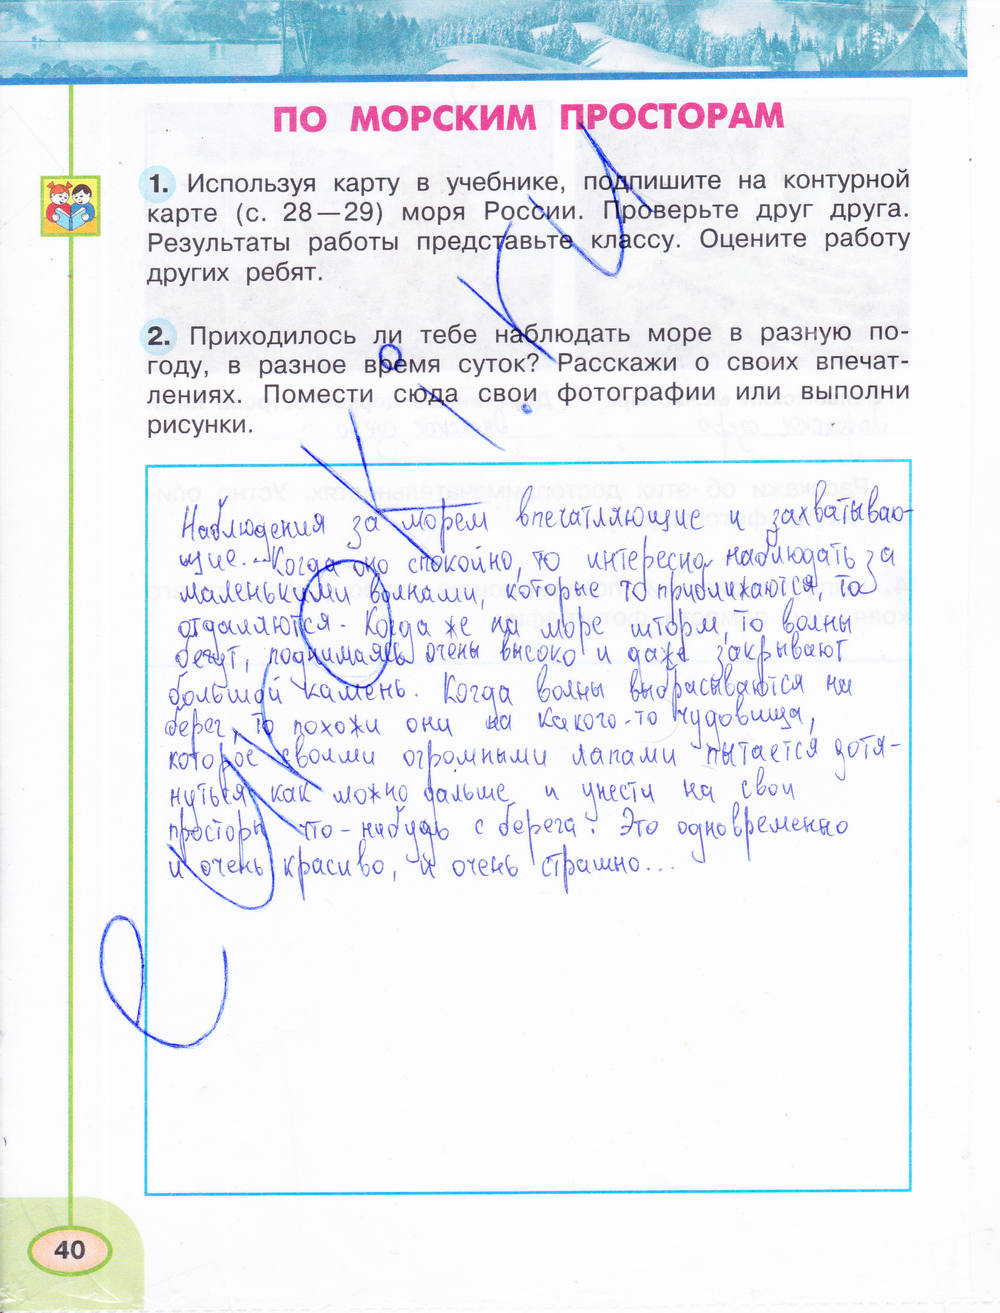 ПО МОРСКИМ ПРОСТОРАМ
1. Используя карту в учебнике, подпишите на контурной
карте (с. 28—29) моря России. Проверьте друг друга.
Результаты работы представьте классу. Оцените работу
других ребят.
2. Приходилось ли тебе наблюдать море в разную по-
году, в разное время суток? Расскажи о своих впечат-
лениях. Помести сюда свои фотографии или выполни
рисунки.
Наблюдения за морем впечатляющие и захватываю-
щие... Когда оно спокойно, то интересно наблюдать за
маленькими волнами, которые то приближаются, то
отдаляются. Когда же на море шторм, то волны
бегут, поднимаясь очень высоко и даже закрывают
большой камень. Когда волны выбрасываются на
берег, то похожи они на какого-то чудовища,
которое своими огромными лапами пытается дотя-
нуться как можно дальше и унести на свои
просторы что-нибудь с берега. Это одновременно
и очень красиво, и очень страшно...
e-uroki.ru
40